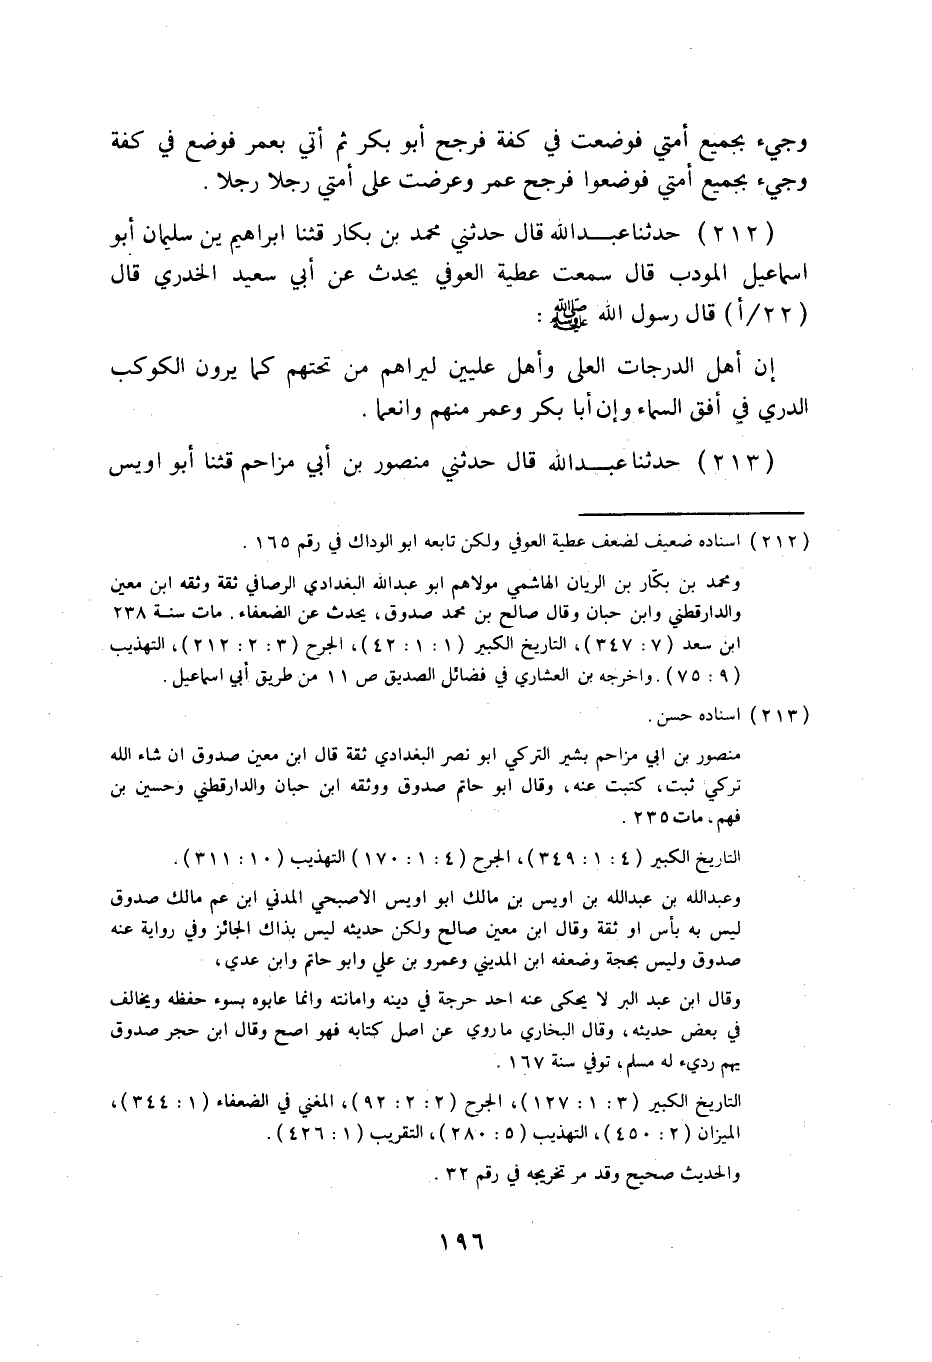 وجيء بجميع أمتي فوضعت في كفة فرجح أبو بكر ثم أتي بعمر فوضع في كفة
وجيء بجميع أمتي فوضعوا فرجح عمر وعرضت على أمتي رجلا رجلا .
(٢١٢) حدثنا عبـــدالله قال حدثني محمد بن بكار قثنا ابراهيم ين سليمان أبو
اسماعيل المودب قال سمعت عطية العوفي يحدث عن أبي سعيد الخدري قال
(٢٢/أ) قال رسول الله ﷺ :
إن أهل الدرجات العلى وأهل عليين ليراهم من تحتهم كما يرون الكوكب
الدري في أفق السماء وإن أبا بكر وعمر منهم وانعما .
(٢١٣) حدثنا عبـــدالله قال حدثني منصور بن أبي مزاحم قثنا أبو اويس
(٢١٢) اسناده ضعيف لضعف عطية العوفي ولكن تابعه ابو الوداك في رقم ١٦٥ .
ومحمد بن بكّار بن الريان الهاشمي مولاهم ابو عبدالله البغدادي الرصافي ثقة وثقه ابن معين
والدارقطني وابن حبان وقال صالح بن محمد صدوق، يحدث عن الضعفاء. مات سنـة ٢٣٨
ابن سعد (٧ : ٣٤٧)، التاريخ الكبير (١ : ١ : ٤٢)، الجرح (٣ : ٢ : ٢١٢)، التهذيب
(٩ : ٧٥) . واخرجه بن العشاري في فضائل الصديق ص ١١ من طريق أبي اسماعيل .
(٢١٣) اسناده حسن .
منصور بن ابي مزاحم بشير التركي ابو نصر البغدادي ثقة قال ابن معين صدوق ان شاء الله
تركي ثبت، كتبت عنه، وقال ابو حاتم صدوق ووثقه ابن حبان والدارقطني وحسين بن
فهم، مات ٢٣٥ .
التاريخ الكبير (٤ : ١ : ٣٤٩)، الجرح (٤ : ١ : ١٧٠) التهذيب (١٠ : ٣١١) .
وعبدالله بن عبدالله بن اويس بن مالك ابو اويس الاصبحي المدني ابن عم مالك صدوق
ليس به بأس او ثقة وقال ابن معين صالح ولكن حديثه ليس بذاك الجائز وفي رواية عنه
صدوق وليس بحجة وضعفه ابن المديني وعمرو بن علي وابو حاتم وابن عدي،
وقال ابن عبد البر لا يحكى عنه احد حرجة في دينه وامانته وانما عابوه بسوء حفظه ويخالف
في بعض حديثه، وقال البخاري ما روي عن اصل كتابه فهو اصح وقال ابن حجر صدوق
يهم رديء له مسلم، توفي سنة ١٦٧ .
التاريخ الكبير (٣ : ١ : ١٢٧)، الجرح (٢ : ٢ : ٩٢)، المغني في الضعفاء (١ : ٣٤٤)،
الميزان (٢ : ٤٥٠)، التهذيب (٥ : ٢٨٠)، التقريب (١ : ٤٢٦) .
والحديث صحيح وقد مر تخريجه في رقم ٣٢ .
١٩٦